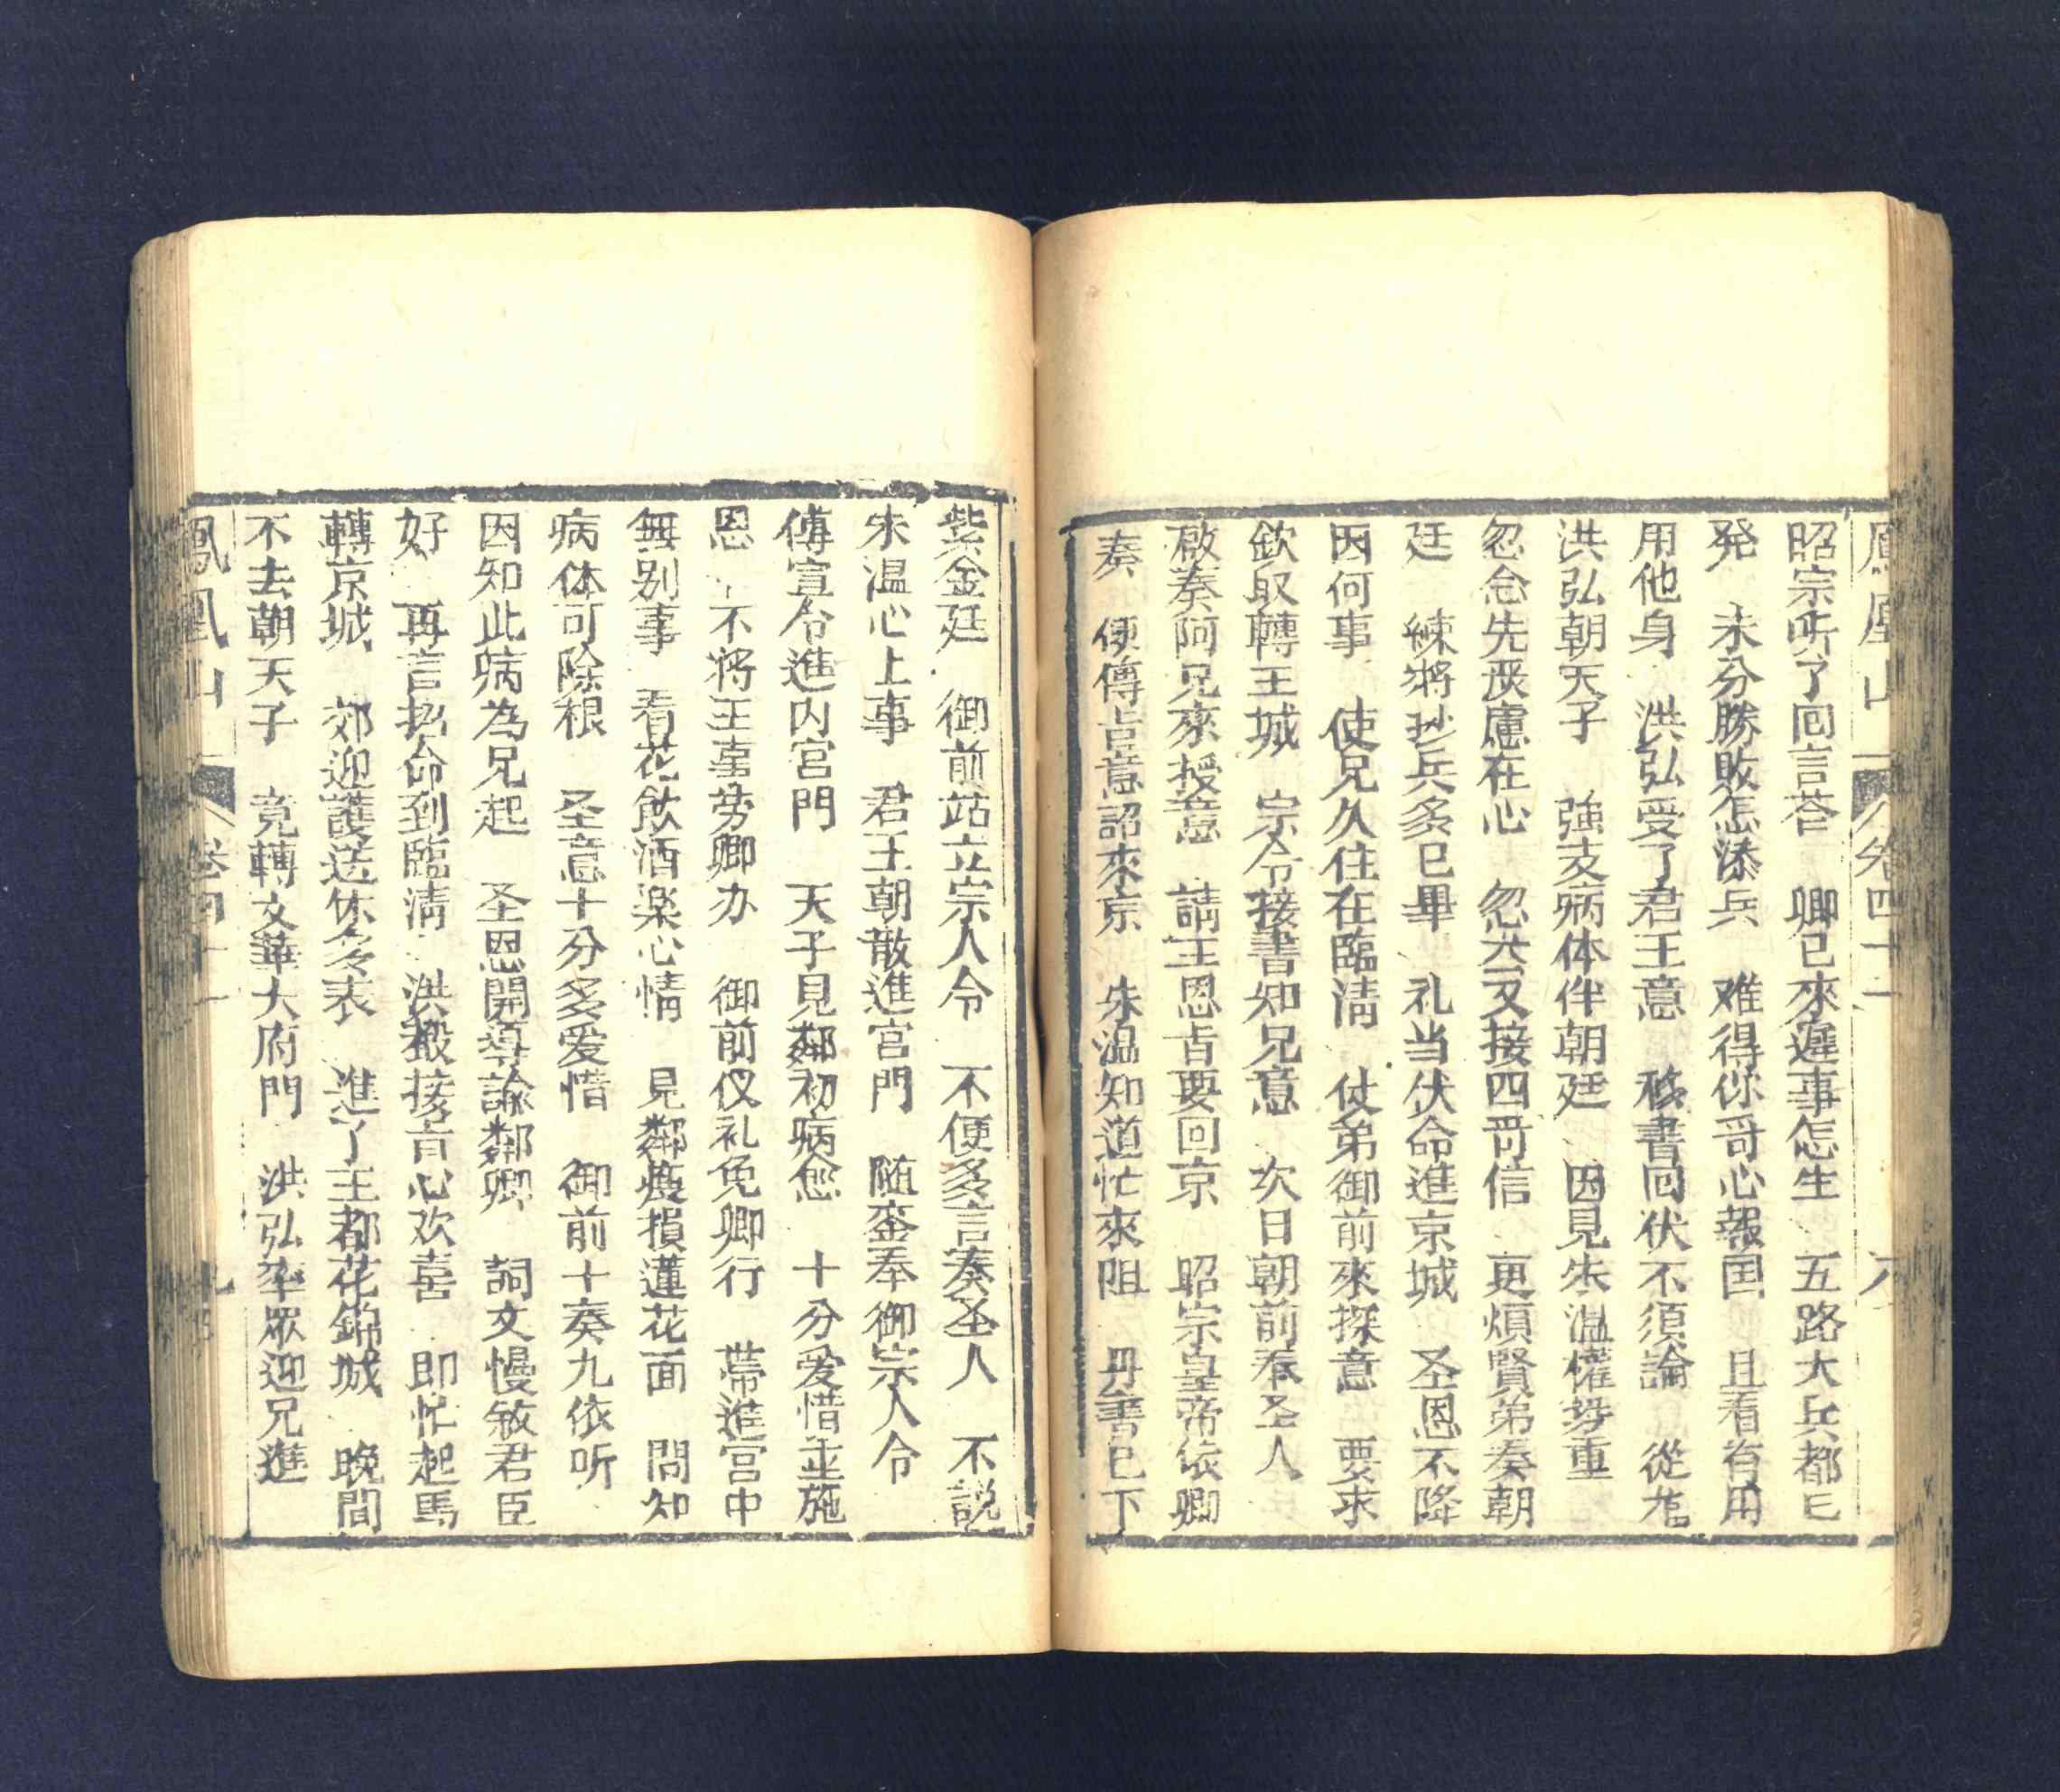 鳳凰山 卷四十一 八
昭宗听了囘言荅 卿已來遲事怎生 五路大兵都已
発 未分勝敗怎添兵 难得你哥心報国 且看有用
用他身 洪弘受了君王意 移書囘伏不須論 從此
洪弘朝天子 強支病体伴朝廷 因見朱温權勢重
忽念先涙慮在心 忽然又接四哥信 更煩賢弟奏朝
廷 練將抄兵多已畢 礼当伏命進京城 圣恩不降
因何事 使兄久住在臨清 仗弟御前來探意 要求
欽取轉王城 宗令接書知兄意 次日朝前奏圣人
啟奏阿兄來授意 請王恩旨要回京 昭宗皇帝依卿
奏 便傳旨意詔來京 朱温知道忙來阻 丹書已下
紫金廷 御前站立宗人令 不便多言奏圣人 不說
朱温心上事 君王朝散進宮門 随銮奉御宗人令
傳宣令進内宮門 天子見鄰初病愈 十分爱惜並施
恩 不將王事劳卿办 御前仪礼免卿行 帶進宮中
無别事 看花飲酒楽心情 見鄰痩損蓮花面 問知
病体可除根 圣意十分多爱惜 御前十奏九依听
因知此病為兄起 圣恩開導諭鄰卿 詞文慢敘君臣
好 再言招命到臨清 洪毅接旨心欢喜 即忙起馬
轉京城 郊迎護送休多表 進了王都花錦城 晚間
不去朝天子 竟轉文華大府門 洪弘率眾迎兄進
鳳凰山 卷四十一 九